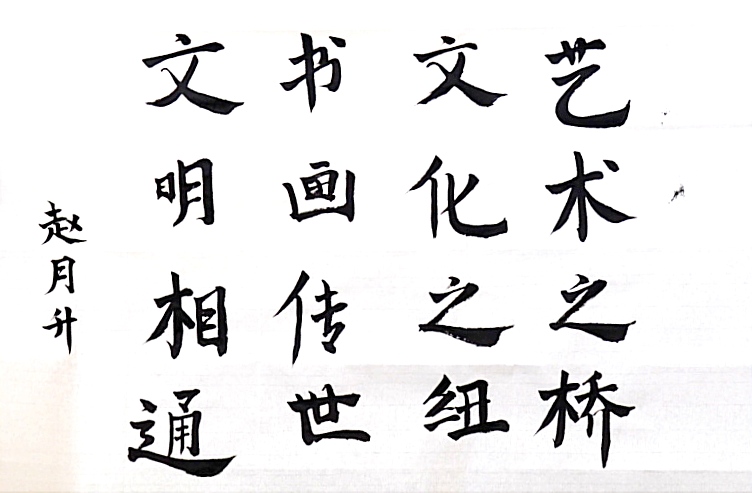 艺术之桥
文化之纽
书画传世
文明相通
赵月升